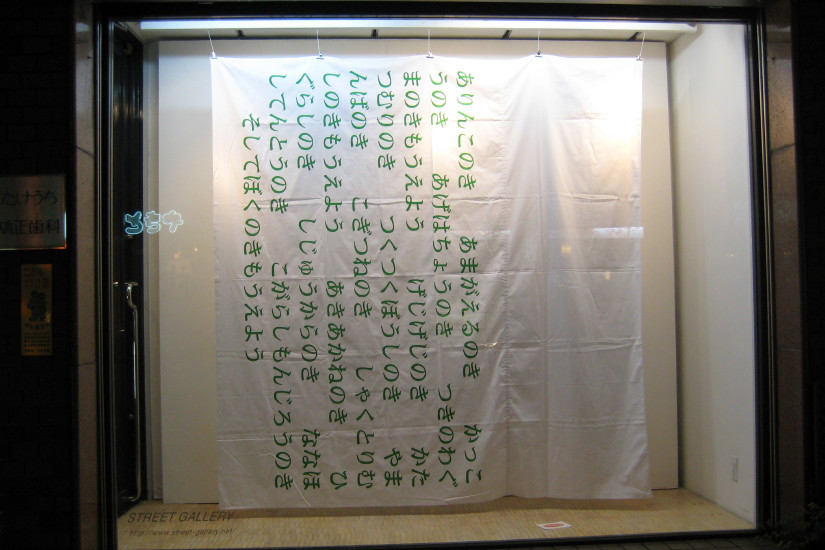 ありんこのき　あまがえるのき　かっこ
うのき　あげはちょうのき　つきのわぐ
まのきもうえよう　げじげじのき　かた
つむりのき　つくつくぼうしのき　やま
んばのき　こぎつねのき　しゃくとりむ
しのきもうえよう　あきあかねのき　ひ
ぐらしのき　しじゅうからのき　ななほ
してんとうのき　こがらしもんじろうのき
そしてぼくのきもうえよう
たけうち
矯正歯科
STREET GALLERY
http://www.street-gallery.net/